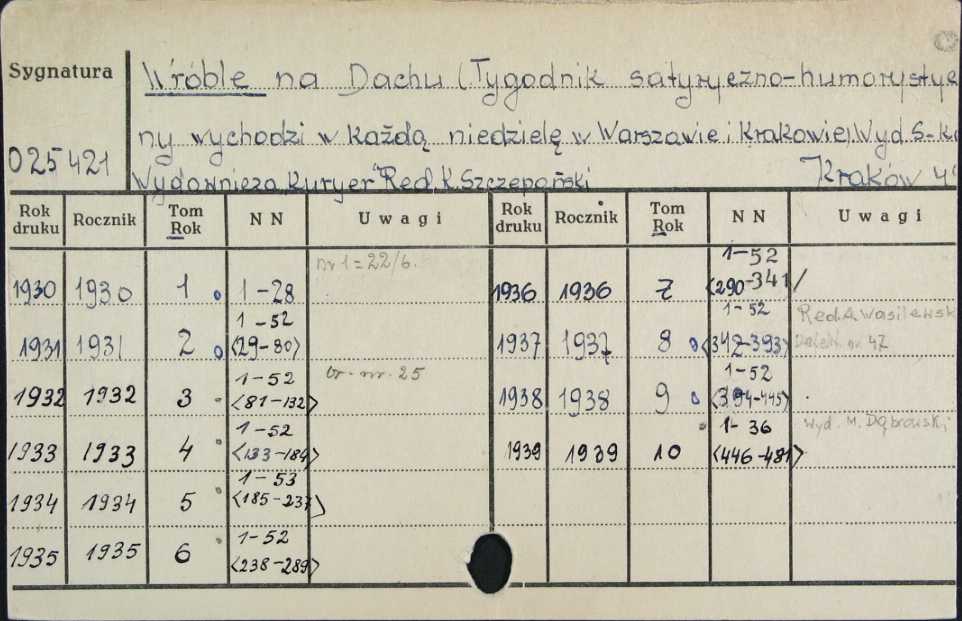 Sygnatura
Wróble na Dachu (Tygodnik satyryczno-humorystycz
ny wychodzi w każdą niedzielę w Warszawie i Krakowie). Wyd. S-ka
025421
Wydawnicza "Kuryer" Red. K. Szczepański Kraków 4°
Rok druku Rocznik Tom Rok NN Uwagi Rok druku Rocznik Tom Rok NN Uwagi
nr 1 = 22/6.
1930 1930 1 1-28
1931 1931 2 1-52 <29-80>
1932 1932 3 1-52 <81-132> br. nr. 25
1933 1933 4 1-52 <133-184>
1934 1934 5 1-53 <185-237>
1935 1935 6 1-52 <238-289>
1936 1936 7 1-52 <290-341>
1937 1937 8 1-52 <342-393> Red. A. Wasilewsk
1938 1938 9 1-52 <394-445>
1939 1939 10 1-36 <446-481> wyd. M. Dąbrowski